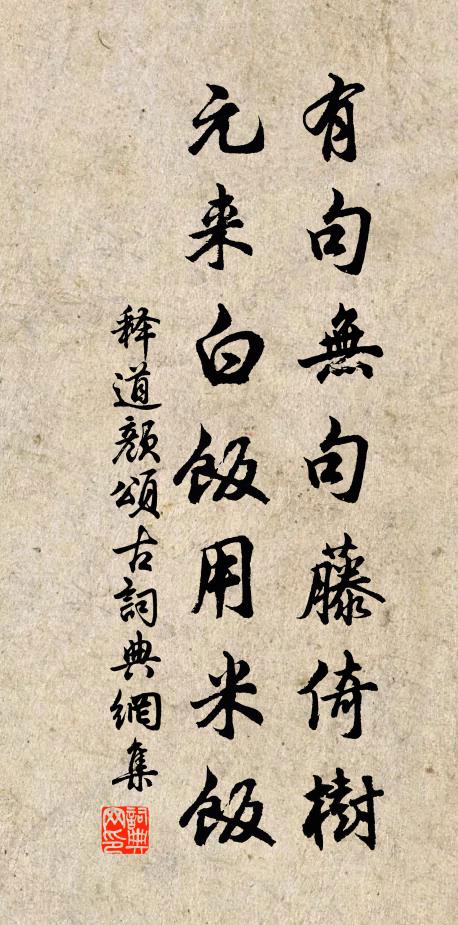 有句無句藤倚樹
元来白飯用米飯
释道顏頌古詞典網集
詞典网印